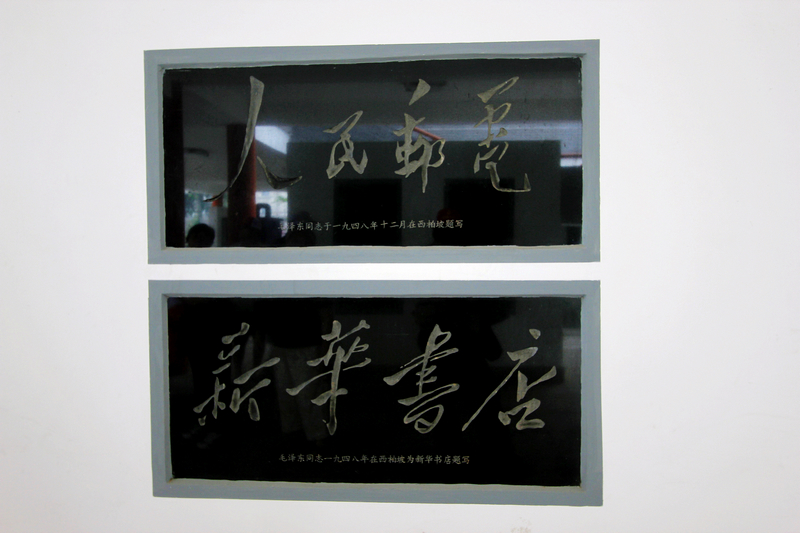 人民郵電
毛泽东同志于一九四八年十二月在西柏坡题写
新華書店
毛泽东同志一九四八年在西柏坡为新华书店题写